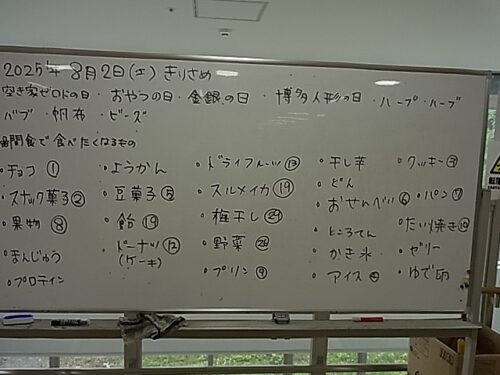 2025年 8月2日(土) きりさめ
空き家ゼロにの日・おやつの日・金銀の日・博多人形の日・ハープ・ハーブ
バブ・帆布・ビーズ
間食で食べたくなるもの
・チョコ ①
・スナック菓子 ②
・果物 ⑧
・まんじゅう
・プロテイン
・ようかん
・豆菓子 ⑤
・飴 ⑲
・ドーナツ ⑫
(ケーキ)
・ドライフルーツ ⑬
・スルメイカ ⑲
・梅干し
・野菜
・プリン ⑨
・干し芋
・どん
・おせんべい ⑥
・ところてん
・かき氷
・アイス ④
・クッキー ③
・パン ⑦
・たい焼き ⑩
・ゼリー
・ゆで卵